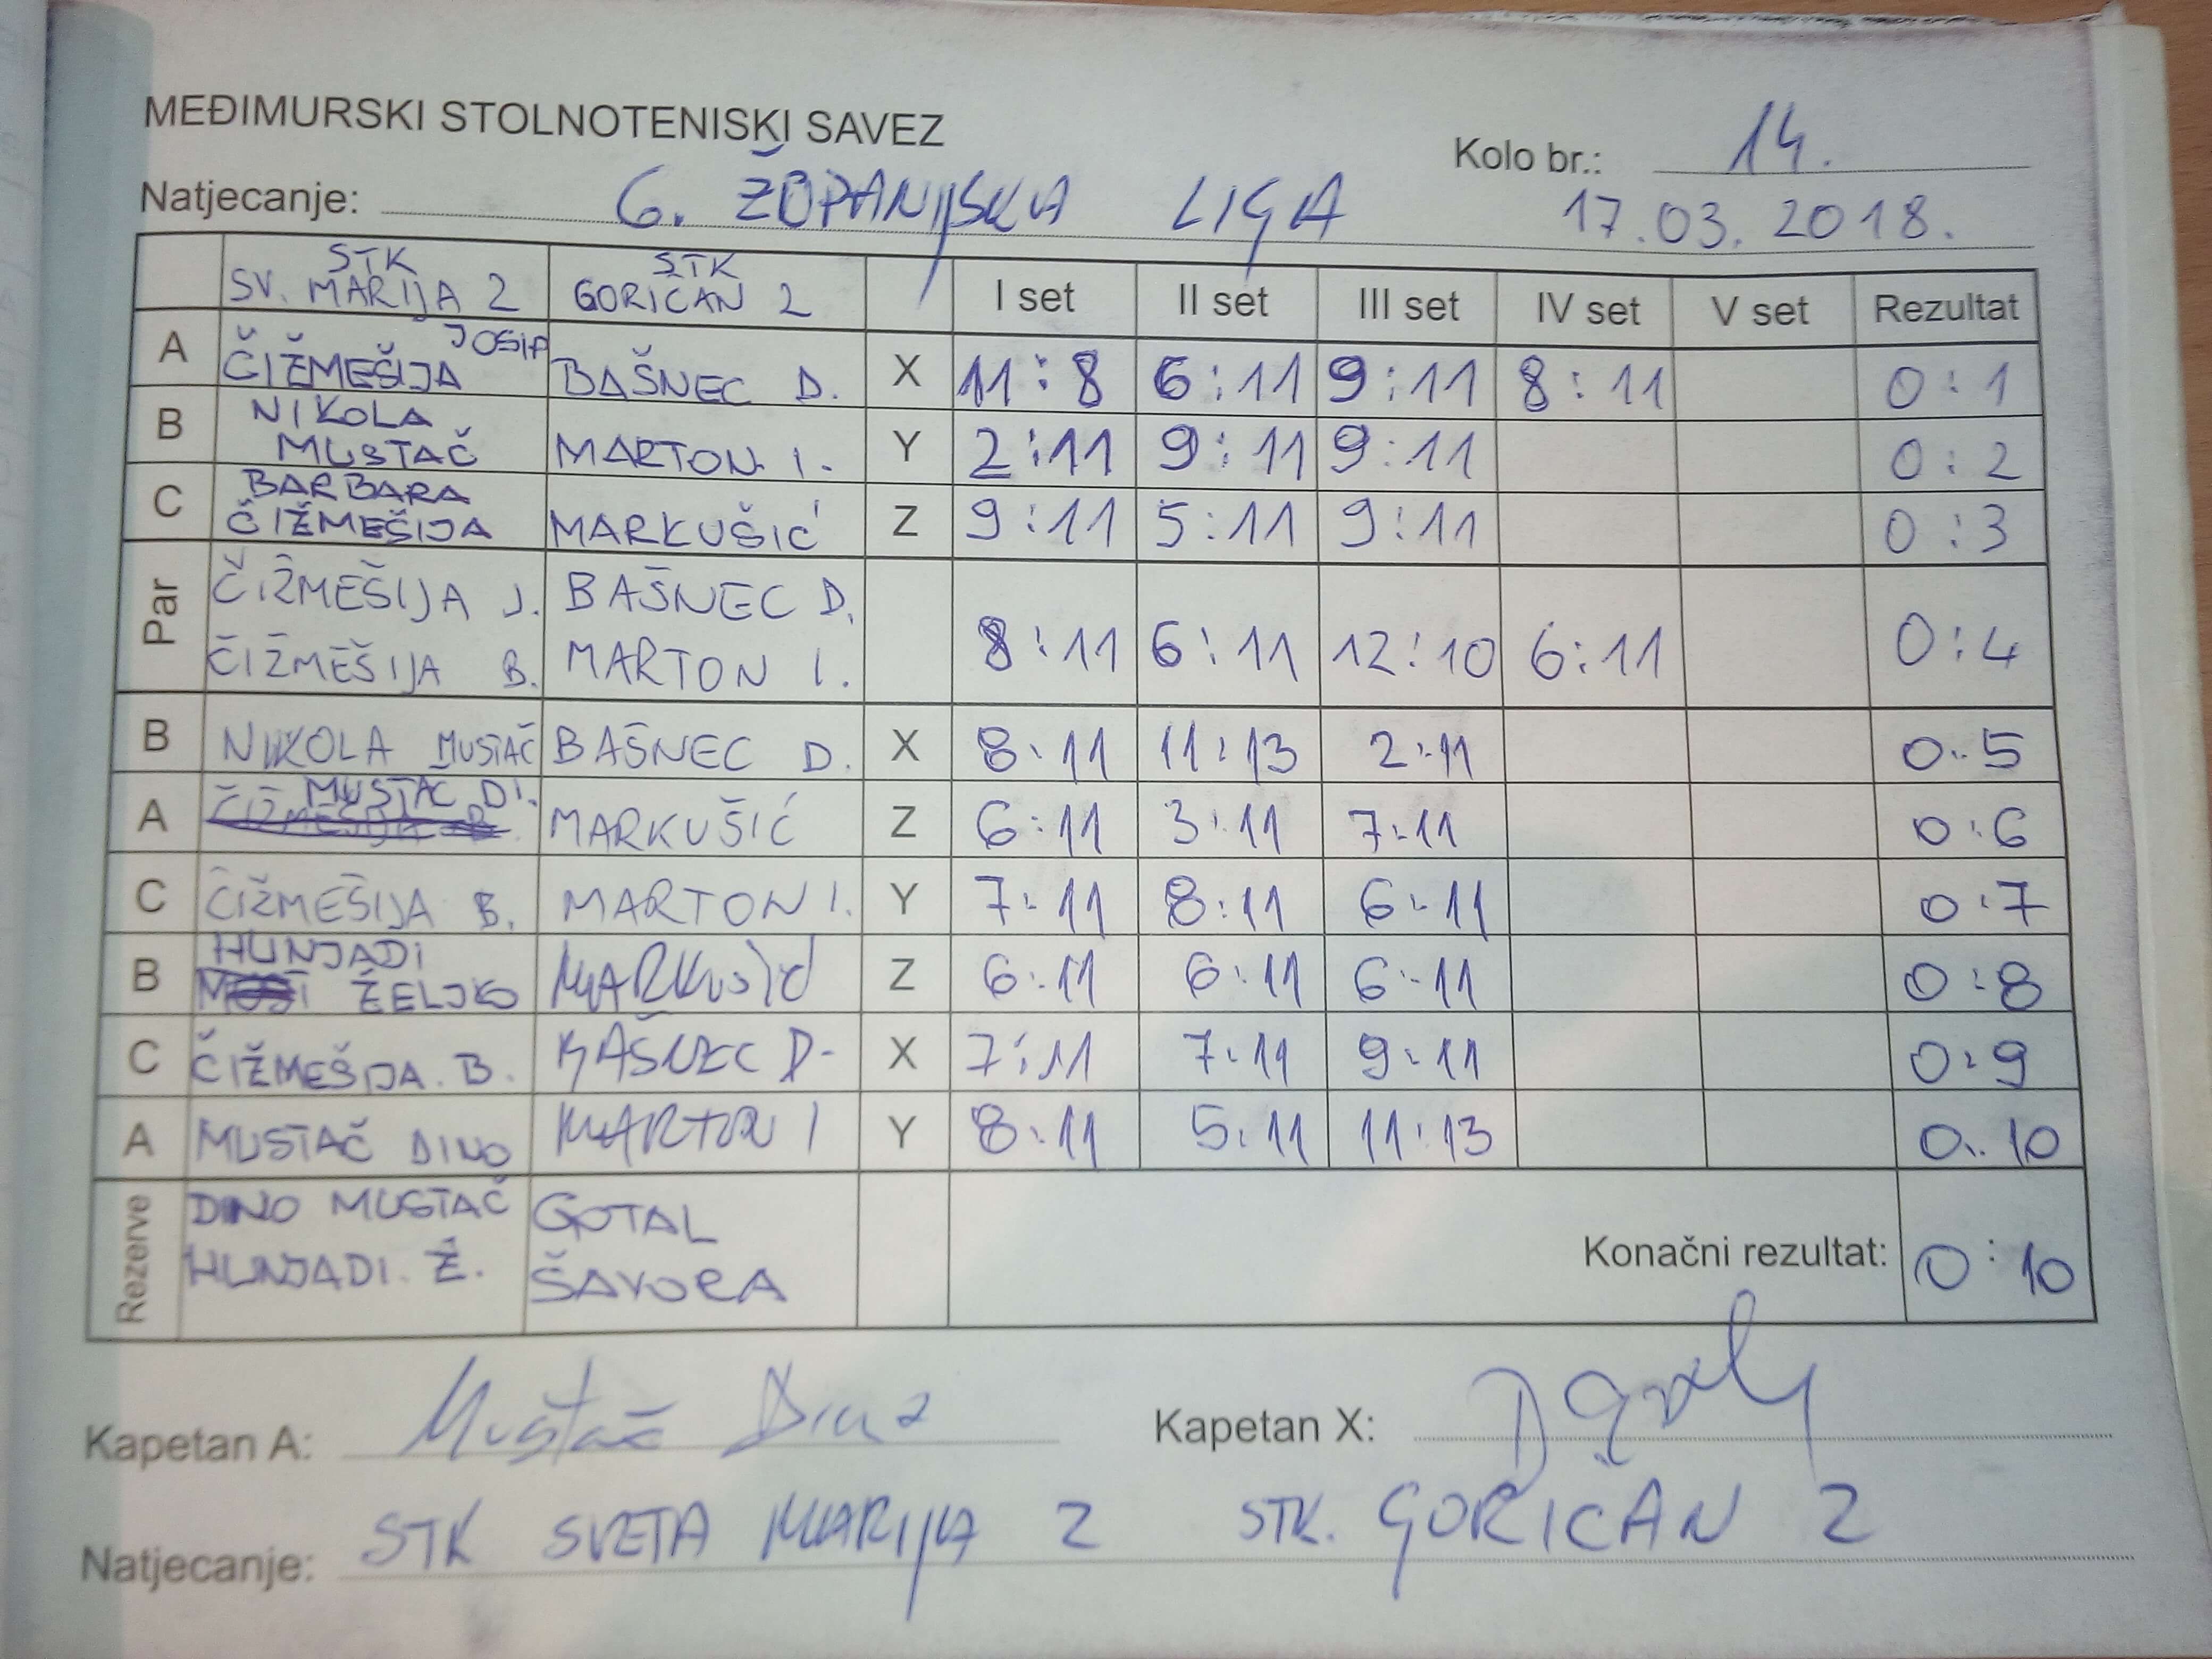 MEĐIMURSKI STOLNOTENISKI SAVEZ
Kolo br.: 14.
Natjecanje: 6. ŽUPANIJSKA LIGA 17.03.2018.
STK SV. MARIJA 2 STK GORIČAN 2 I set II set III set IV set V set Rezultat
A ČIŽMEŠIJA JOSIP BAŠNEC D. X 11:8 6:11 9:11 8:11 0:1
B NIKOLA MUSTAČ MARTON I. Y 2:11 9:11 9:11 0:2
C BARBARA ČIŽMEŠIJA MARKUŠIĆ Z 9:11 5:11 9:11 0:3
Par ČIŽMEŠIJA J. BAŠNEC D.
ČIŽMEŠIJA B. MARTON I. 8:11 6:11 12:10 6:11 0:4
B NIKOLA MUSTAČ BAŠNEC D. X 8:11 11:13 2:11 0:5
A MUSTAČ DI. MARKUŠIĆ Z 6:11 3:11 7:11 0:6
C ČIŽMEŠIJA B. MARTON I. Y 7:11 8:11 6:11 0:7
B HUNJADI ŽELJKO MARKUŠIĆ Z 6:11 6:11 6:11 0:8
C ČIŽMEŠIJA. B. BAŠNEC D. X 7:11 7:11 9:11 0:9
A MUSTAČ DINO MARTON I Y 8:11 5:11 11:13 0:10
Rezerve DINO MUSTAČ GOTAL
HUNJADI. Ž. ŠAVORA
Konačni rezultat: 0:10
Kapetan A: Mustač Dino Kapetan X:
Natjecanje: STK SVETA MARIJA 2 STK. GORIČAN 2